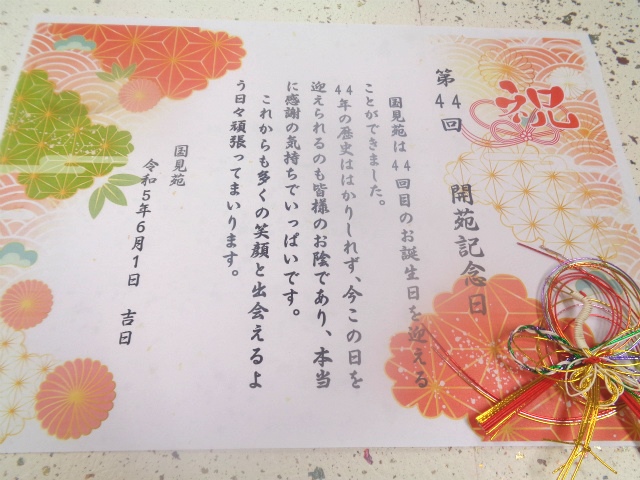 祝
第44回 開苑記念日
国見苑は44回目のお誕生日を迎える
ことができました。
44年の歴史ははかりしれず、今この日を
迎えられるのも皆様のお陰であり、本当
に感謝の気持ちでいっぱいです。
これからも多くの笑顔と出会えるよ
う日々頑張ってまいります。
国見苑
令和5年6月1日 吉日